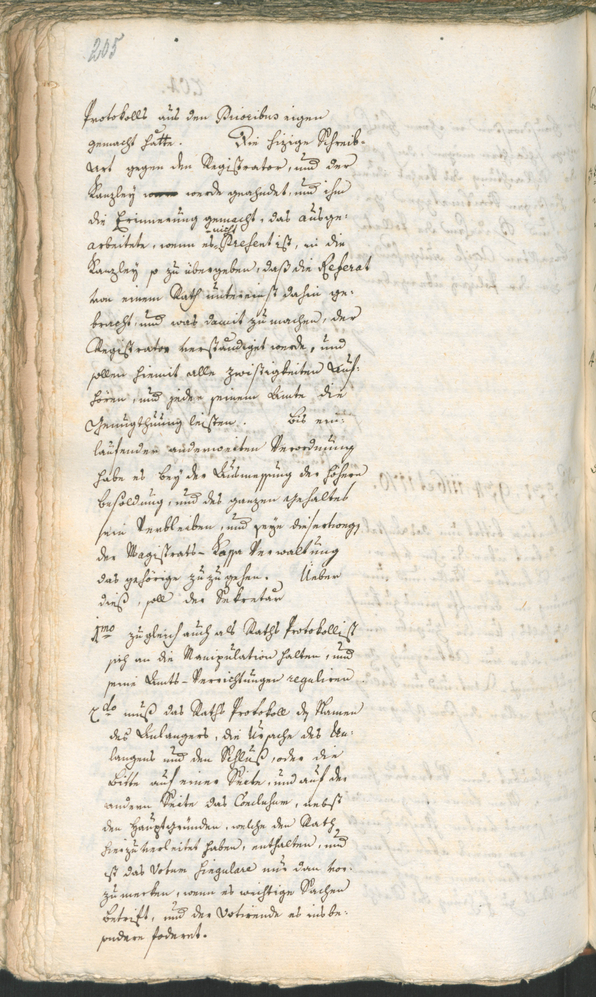 205
Protokolls aus den Prioribus eigen
gemacht hatte. Die hizige Schreib-
Art gegen den Registrator, und der
Kanzley werde geahndet, und ihm
die Erinnerung gemacht, das ausge-
arbeitete, wenn es nicht Present ist, in die
Kanzley p zu übergeben, daß die Referat
von einem Rath untereinst dahin ge-
bracht, und was damit zu machen, der
Registrator verständiget werde, und
sollen hiemit alle Zwistigkeiten auf-
hören, und jeder seinem Amte die
Genugthuung leisten. Bis ein-
laufender anderweiten Verordnung
habe es bey der Ausmessung der höhern
Besoldung, und des ganzen Gehaltes
sein Verbleiben, und seye diesertwegs
der Magistrats-Kassa Verwaltung
das gehörige zuzugehen. Ueber
dieß, soll der Sekretär
1mo zugleich auch als Raths Protokollist
sich an die Manipulation halten, und
seine Amts-Verrichtungen reguliren
2do muß das Raths Protokoll den Namen
des Anlangers, die Ursache des An-
langens und den Schluß, oder die
Bitte auf einer Seite, und auf der
andern Seite das Conclusum, nebst
den Hauptgründen, welche den Rath
hiezu verleitet haben, enthalten, und
ist das Votum Singulare nur dan vor-
zumerken, wenn es wichtige Sachen
betrift, und der Votirende es insbe-
sondere foderet.